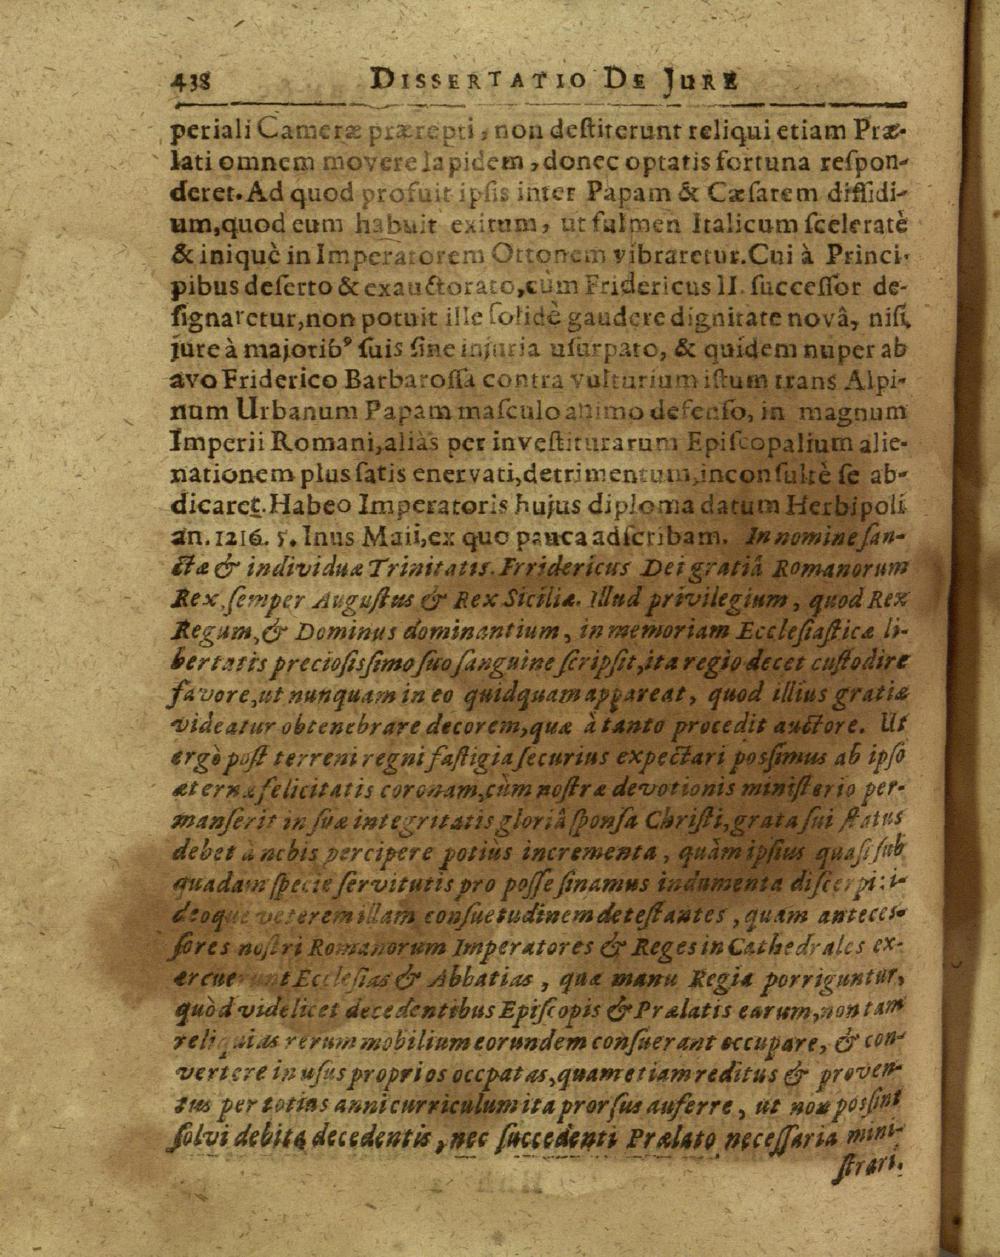 438 DISSERTATIO DE JURE
periali Cameræ prærepti, non deſtiterunt reliqui etiam Præ-
lati omnem movere lapidem, donec optatis fortuna reſpon-
deret. Ad quod profuit ipſis inter Papam & Cæſarem diſſidi-
um, quod eum habuit exitum, ut fulmen Italicum ſceleratè
& iniquè in Imperatorem Ottonem vibraretur. Cui à Princi-
pibus deſerto & exauctorato, cùm Fridericus II. ſucceſſor de-
ſignaretur, non potuit ille ſolidè gaudere dignitate novâ, niſi,
jure à majorib⁹ ſuis ſine injuria uſurpato, & quidem nuper ab
avo Friderico Barbaroſſa contra vulturium iſtum trans Alpi-
num Urbanum Papam maſculo animo defenſo, in magnum
Imperii Romani, aliàs per inveſtiturarum Epiſcopalium alie-
nationem plus ſatis enervati, detrimentum, inconſultè ſe ab-
dicaret. Habeo Imperatoris hujus diploma datum Herbipoli
an. 1216. 5. Inus Maii, ex quo pauca adſcribam. In nomine ſan-
ctæ & individuæ Trinitatis. Frridericus Dei gratiâ Romanorum
Rex, ſemper Auguſtus & Rex Siciliæ. Illud privilegium, quod Rex
Regum, & Dominus dominantium, in memoriam Eccleſiaſticæ li-
bertatis precioſiſſimo ſuo ſanguine ſcripſit, ita regio decet cuſtodire
favore, ut nunquam in eo quidquam appareat, quod illius gratiæ
videatur obtenebrare decorem, quæ à tanto procedit auctore. Ut
ergò poſt terreni regni faſtigia ſecurius expectari poſſimus ab ipſo
æternæ felicitatis coronam, cùm noſtræ devotionis miniſterio per-
manſerit in ſuæ integritatis gloriâ ſponſa Chriſti, grata ſui ſtatus
debet à nobis percipere potiùs incrementa, quàm ipſius quaſi ſub
quadam ſpecie ſervitutis pro poſſe ſinamus indumenta diſcerpi: i-
deoque veterem illam conſuetudinem deteſtantes, quam anteceſ-
ſores noſtri Romanorum Imperatores & Reges in Cathedrales ex-
ercuerunt Eccleſias & Abbatias, quæ manu Regia porriguntur,
quòd videlicet decedentibus Epiſcopis & Prælatis earum, non tam
reliquias rerum mobilium eorundem conſuerant occupare, & con-
vertere in uſus proprios occpatas, quam etiam reditus & proven-
tus per totius anni curriculum ita prorſus auferre, ut non poſſint
ſolvi debita decedentis, nec ſuccedenti Prælato neceſſaria mini-
ſtrari.